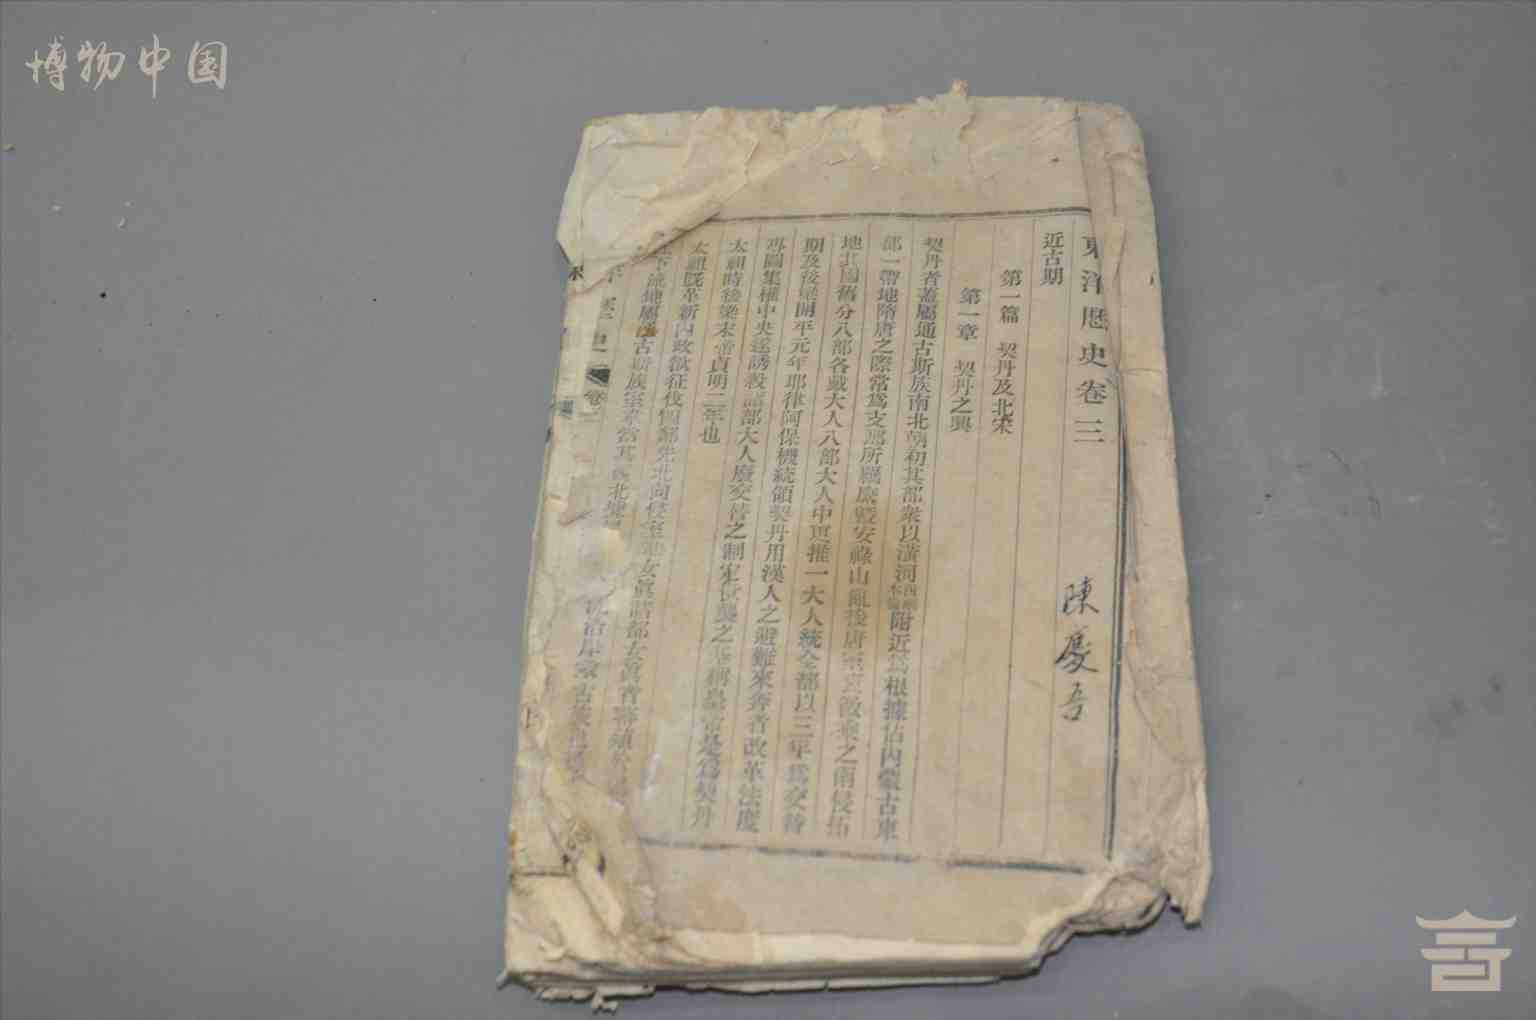 博物中国
東洋歷史卷三
陳慶吾
近古期
第一篇 契丹及北宋
第一章 契丹之興
契丹者蓋屬通古斯族南北朝初其部衆以潢河附近爲根據佔內蒙古東
部一帶地隋唐之際常爲支那所羈縻暨安祿山亂後唐室衰微乘之南侵拓
地其國舊分八部各戴大人八部大人中更推一大人統全部以三年爲交替
期及後梁開平元年耶律阿保機統領契丹用漢人之避難來奔者改革法度
再圖集權中央遂誘殺諸部大人廢交替之制定世襲之基稱皇帝是爲契丹
太祖時後梁末帝貞明二年也
太祖既革新內政欲征伐四鄰先北向侵室韋女真諸部女真者
下流地屬通古斯族室韋當其西北
沿岸蒙古族